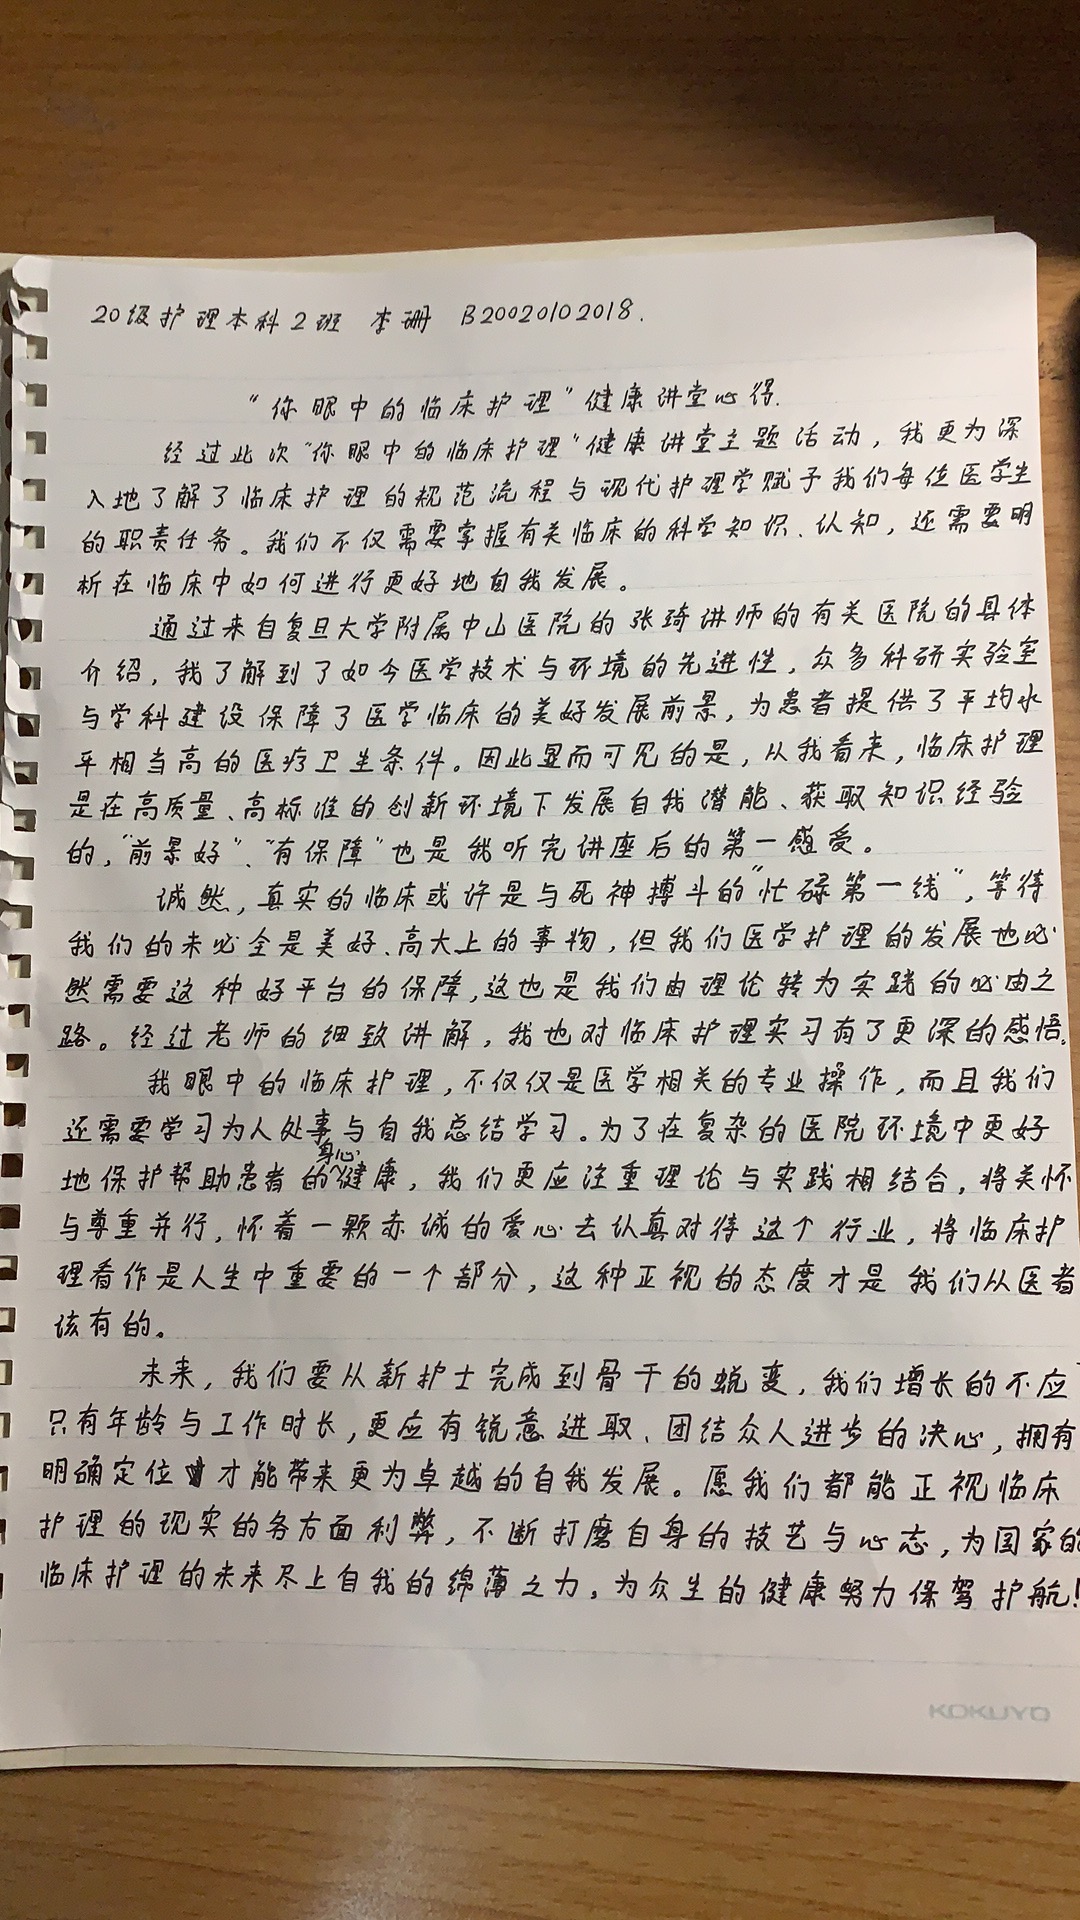 20级护理本科2班 李珊 B20020102018.
“你眼中的临床护理”健康讲堂心得.
经过此次“你眼中的临床护理”健康讲堂主题活动，我更为深
入地了解了临床护理的规范流程与现代护理学赋予我们每位医学生
的职责任务。我们不仅需要掌握有关临床的科学知识、认知，还需要明
析在临床中如何进行更好地自我发展。
通过来自复旦大学附属中山医院的张琦讲师的有关医院的具体
介绍，我了解到了如今医学技术与环境的先进性，众多科研实验室
与学科建设保障了医学临床的美好发展前景，为患者提供了平均水
平相当高的医疗卫生条件。因此显而可见的是，从我看来，临床护理
是在高质量、高标准的创新环境下发展自我潜能、获取知识经验
的，“前景好”、“有保障”也是我听完讲座后的第一感受。
诚然，真实的临床或许是与死神搏斗的“忙碌第一线”，等待
我们的未必全是美好、高大上的事物，但我们医学护理的发展也必
然需要这种好平台的保障，这也是我们由理论转为实践的必由之
路。经过老师的细致讲解，我也对临床护理实习有了更深的感悟。
我眼中的临床护理，不仅仅是医学相关的专业操作，而且我们
还需要学习为人处事与自我总结学习。为了在复杂的医院环境中更好
地保护帮助患者的身心健康，我们更应注重理论与实践相结合，将关怀
与尊重并行，怀着一颗赤诚的爱心去认真对待这个行业，将临床护
理看作是人生中重要的一个部分，这种正视的态度才是我们从医者
该有的。
未来，我们要从新护士完成到骨干的蜕变，我们增长的不应
只有年龄与工作时长，更应有锐意进取、团结众人进步的决心，拥有
明确定位才能带来更为卓越的自我发展。愿我们都能正视临床
护理的现实的各方面利弊，不断打磨自身的技艺与心态，为国家的
临床护理的未来尽上自我的绵薄之力，为众生的健康努力保驾护航！
KOKUYO